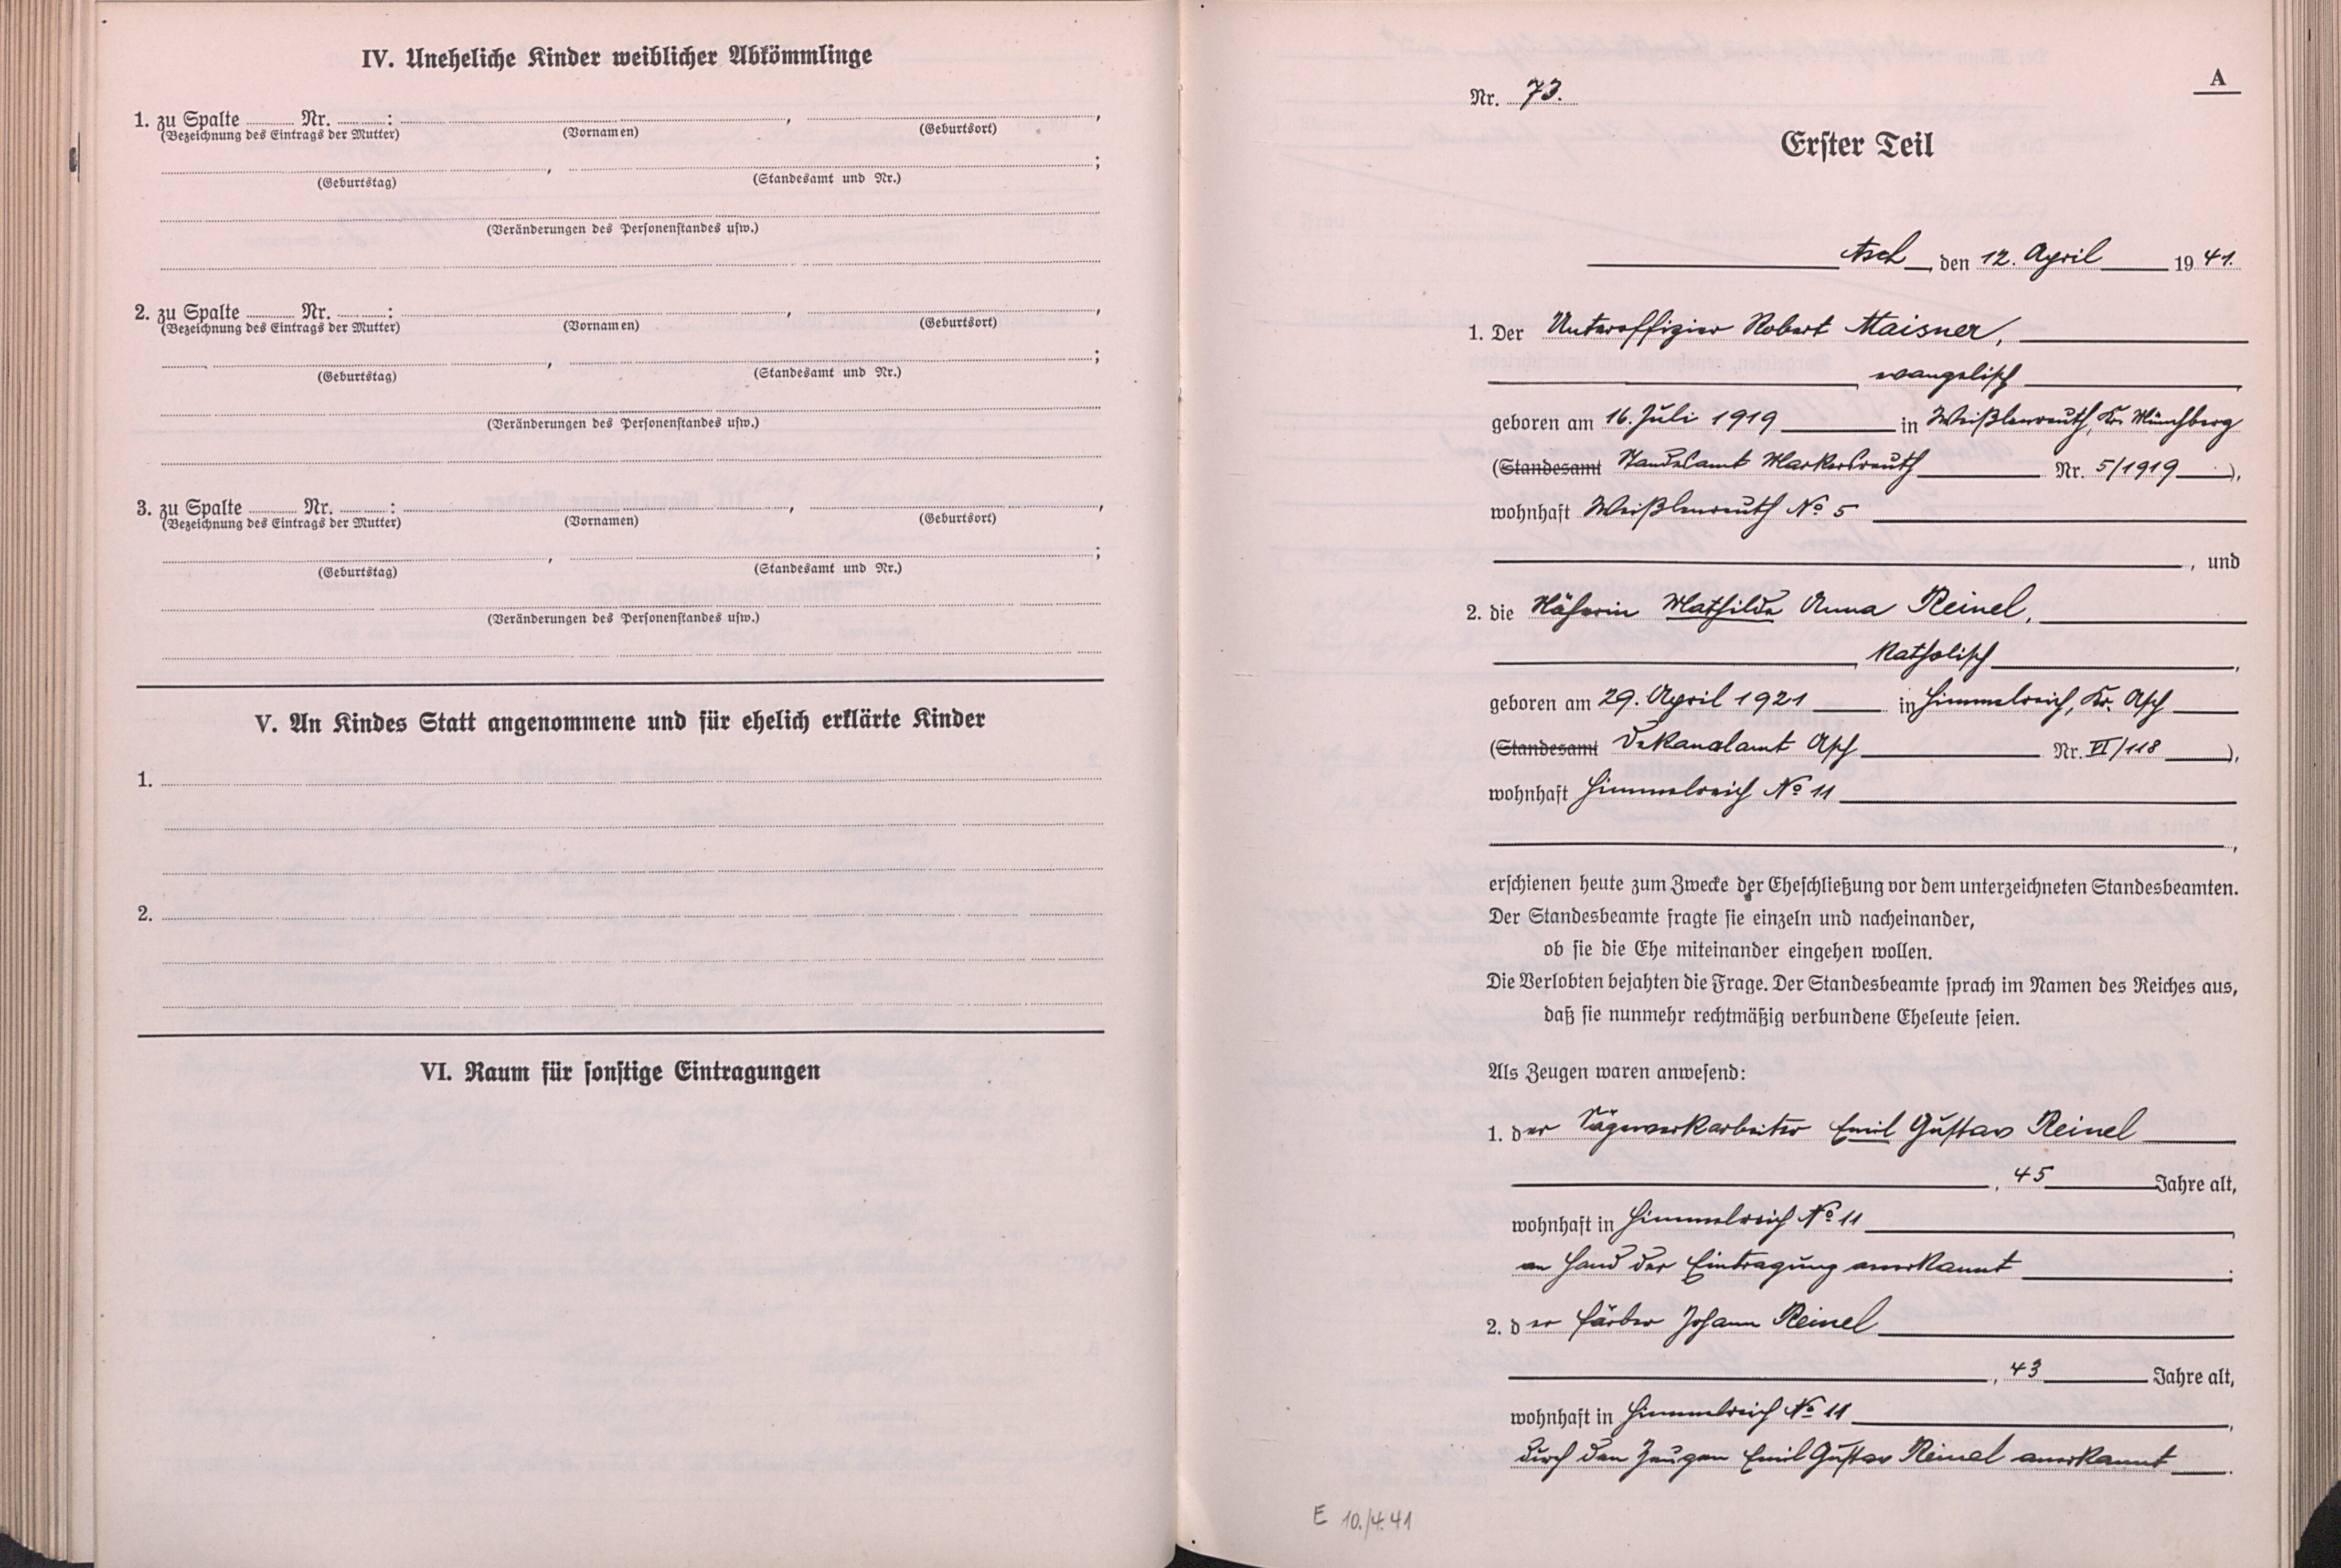 IV. Uneheliche Kinder weiblicher Abkömmlinge
1. zu Spalte ........ Nr. ........ : , ,
(Bezeichnung des Eintrags der Mutter) (Vornamen) (Geburtsort)
, ;
(Geburtstag) (Standesamt und Nr.)
(Veränderungen des Personenstandes usw.)
2. zu Spalte ........ Nr. ........ : , ,
(Bezeichnung des Eintrags der Mutter) (Vornamen) (Geburtsort)
, ;
(Geburtstag) (Standesamt und Nr.)
(Veränderungen des Personenstandes usw.)
3. zu Spalte ........ Nr. ........ : , ,
(Bezeichnung des Eintrags der Mutter) (Vornamen) (Geburtsort)
, ;
(Geburtstag) (Standesamt und Nr.)
(Veränderungen des Personenstandes usw.)
V. An Kindes Statt angenommene und für ehelich erklärte Kinder
1.
2.
VI. Raum für sonstige Eintragungen
A
Nr. 73.
Erster Teil
Asch, den 12. April 1941.
1. Der Unteroffizier Robert Maisner,
, evangelisch ,
geboren am 16. Juli 1919 in Weißlenreuth, Kr. Münchberg
(Standesamt Standesamt Markersreuth Nr. 5/1919 ),
wohnhaft Weißlenreuth No 5
, und
2. die Näherin Mathilde Anna Reinel,
, katholisch ,
geboren am 29. April 1921 in Himmelreich, Kr. Asch
(Standesamt Dekanalamt Asch Nr. VI/118 ),
wohnhaft Himmelreich No 11
,
erschienen heute zum Zwecke der Eheschließung vor dem unterzeichneten Standesbeamten.
Der Standesbeamte fragte sie einzeln und nacheinander,
ob sie die Ehe miteinander eingehen wollen.
Die Verlobten bejahten die Frage. Der Standesbeamte sprach im Namen des Reiches aus,
daß sie nunmehr rechtmäßig verbundene Eheleute seien.
Als Zeugen waren anwesend:
1. der Sägewerkarbeiter Emil Gustav Reinel
, 45 Jahre alt,
wohnhaft in Himmelreich No 11 ,
an Hand der Eintragung anerkannt .
2. der Färber Johann Reinel
, 43 Jahre alt,
wohnhaft in Himmelreich No 11 ,
durch den Zeugen Emil Gustav Reinel anerkannt .
E 10./4.41